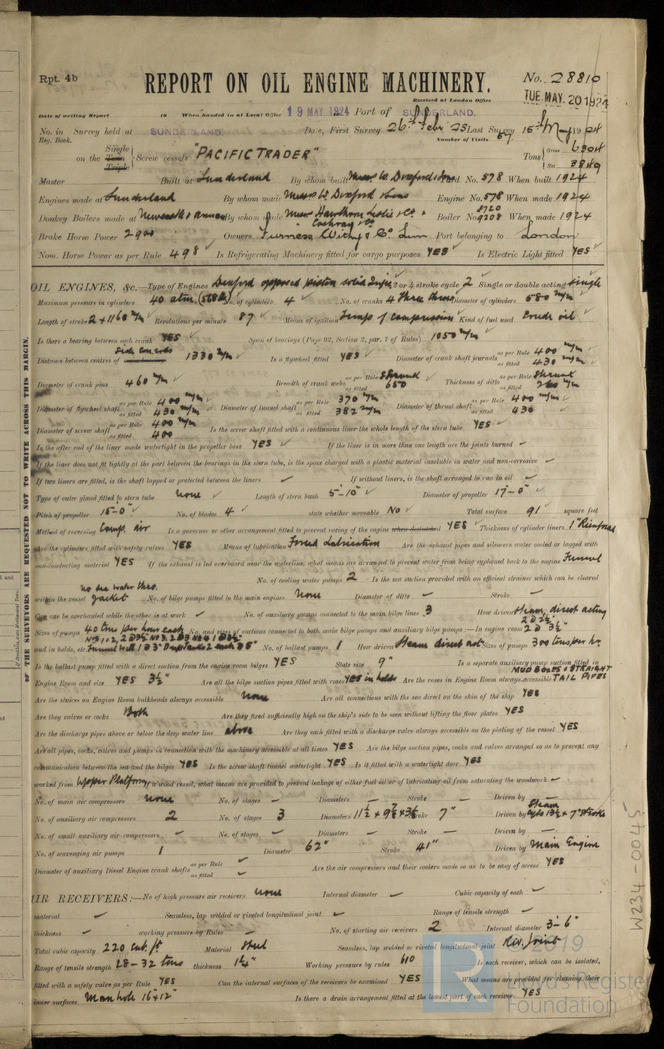 Rpt. 4b
REPORT ON OIL ENGINE MACHINERY.
No. 28810
Received at London Office TUE. MAY. 20 1924
Date of writing Report 19 When handed in at Local Office 19 MAY 1924 Port of SUNDERLAND.
No. in Survey held at SUNDERLAND. Date, First Survey 26th Feb. 23 Last Survey 15th May 1924
Reg. Book. Number of Visits 57
on the Single Twin Triple Screw vessels "PACIFIC TRADER" Tons Gross 6304 Net 3849
Master Built at Sunderland By whom built Messrs W. Doxford & Sons Yard No. 578 When built 1924
Engines made at Sunderland By whom made Messrs W. Doxford & Sons Engine No. 578 When made 1924
Donkey Boilers made at Newcastle & Annan By whom made Messrs Hawthorn Leslie & Co. & Cochran & Co. Boiler No. 9208 When made 1924
Brake Horse Power 2900 Owners Furness Withy & Co Lim Port belonging to London
Nom. Horse Power as per Rule 498 Is Refrigerating Machinery fitted for cargo purposes YES Is Electric Light fitted YES
OIL ENGINES, &c.—Type of Engines Doxford opposed piston solid Injn 2 or 4 stroke cycle 2 Single or double acting Single
Maximum pressure in cylinders 40 atm. No. of cylinders 4 No. of cranks 4 Three throw Diameter of cylinders 580 m/m
Length of stroke 2 + 1160 m/m Revolutions per minute 87 Means of ignition Temp of compression Kind of fuel used Crude oil
Is there a bearing between each crank YES Span of bearings (Page 92, Section 2, par. 7 of Rules) 1050 m/m
Distance between centres of Side con rods 1330 m/m Is a flywheel fitted YES Diameter of crank shaft journals as per Rule 400 m/m as fitted 430 m/m
Diameter of crank pins 460 m/m Breadth of crank webs as per Rule Shrunk as fitted 650 Thickness of ditto as per Rule Shrunk as fitted 260 m/m
Diameter of flywheel shaft as per Rule 400 m/m as fitted 430 m/m Diameter of tunnel shaft as per Rule 370 m/m as fitted 382 m/m Diameter of thrust shaft as per Rule 400 m/m as fitted 430
Diameter of screw shaft as per Rule 400 m/m as fitted 400 Is the screw shaft fitted with a continuous liner the whole length of the stern tube YES
Is the after end of the liner made watertight in the propeller boss YES If the liner is in more than one length are the joints burned
If the liner does not fit tightly at the part between the bearings in the stern tube, is the space charged with a plastic material insoluble in water and non-corrosive
If two liners are fitted, is the shaft lapped or protected between the liners If without liners, is the shaft arranged to run in oil
Type of outer gland fitted to stern tube None Length of stern bush 5'-10" Diameter of propeller 17'-0"
Pitch of propeller 15'-0" No. of blades 4 state whether moveable No Total surface 91 square feet
Method of reversing Comp. air Is a governor or other arrangement fitted to prevent racing of the engine when declutched YES Thickness of cylinder liners 1" Reinforced
Are the cylinders fitted with safety valves YES Means of lubrication Forced Lubrication Are the exhaust pipes and silencers water cooled or lagged with
non-conducting material YES If the exhaust is led overboard near the waterline, what means are arranged to prevent water from being syphoned back to the engine Funnel
No. of cooling water pumps 2 Is the sea suction provided with an efficient strainer which can be cleared
within the vessel No. of bilge pumps fitted to the main engines None Diameter of ditto Stroke
Can one be overhauled while the other is at work No. of auxiliary pumps connected to the main bilge lines 3 How driven Steam, direct acting
Sizes of pumps 40 tons per hour each No. and sizes of suctions connected to both main bilge pumps and auxiliary bilge pumps :—In engine room
and in holds, etc. No. of ballast pumps 1 How driven Steam direct act. Sizes of pumps 300 tons per hr.
Is the ballast pump fitted with a direct suction from the engine room bilges YES State size 9" Is a separate auxiliary pump suction fitted in
Engine Room and size YES 3½" Are all the bilge suction pipes fitted with roses YES in holds Are the roses in Engine Room always accessible MUD BOXES & STRAIGHT TAIL PIPES
Are the sluices on Engine Room bulkheads always accessible None Are all connections with the sea direct on the skin of the ship YES
Are they valves or cocks Both Are they fixed sufficiently high on the ship's side to be seen without lifting the floor plates YES
Are the discharge pipes above or below the deep water line above Are they each fitted with a discharge valve always accessible on the plating of the vessel YES
Are all pipes, cocks, valves and pumps in connection with the machinery accessible at all times YES Are the bilge suction pipes, cocks and valves arranged so as to prevent any
communication between the sea and the bilges YES Is the screw shaft tunnel watertight YES Is it fitted with a watertight door YES
worked from Upper Platform If a wood vessel, what means are provided to prevent leakage of either fuel oil or of lubricating oil from saturating the woodwork
No. of main air compressors None No. of stages Diameters Stroke Driven by
No. of auxiliary air compressors 2 No. of stages 3 Diameters Stroke 7" Driven by Steam
No. of small auxiliary air compressors No. of stages Diameters Stroke Driven by
No. of scavenging air pumps 1 Diameter 62" Stroke 41" Driven by Main Engine
Diameter of auxiliary Diesel Engine crank shafts as per Rule as fitted Are the air compressors and their coolers made so as to be easy of access YES
AIR RECEIVERS:—No of high pressure air receivers None Internal diameter Cubic capacity of each
material Seamless, lap welded or riveted longitudinal joint Range of tensile strength
thickness working pressure by Rules No. of starting air receivers 2 Internal diameter 3'-6"
Total cubic capacity 220 cub. ft Material Steel Seamless, lap welded or riveted longitudinal joint Riv. Joint
Range of tensile strength 28-32 tons thickness 1¼" Working pressure by rules 610 Is each receiver, which can be isolated,
fitted with a safety valve as per Rule YES Can the internal surfaces of the receivers be examined YES What means are provided for cleaning their
inner surfaces Manhole 16"x12" Is there a drain arrangement fitted at the lowest part of each receiver YES
OF THE SURVEYORS ARE REQUESTED NOT TO WRITE ACROSS THIS MARGIN.
W234-0045
2019
LR
Lloyd's Register
Foundation